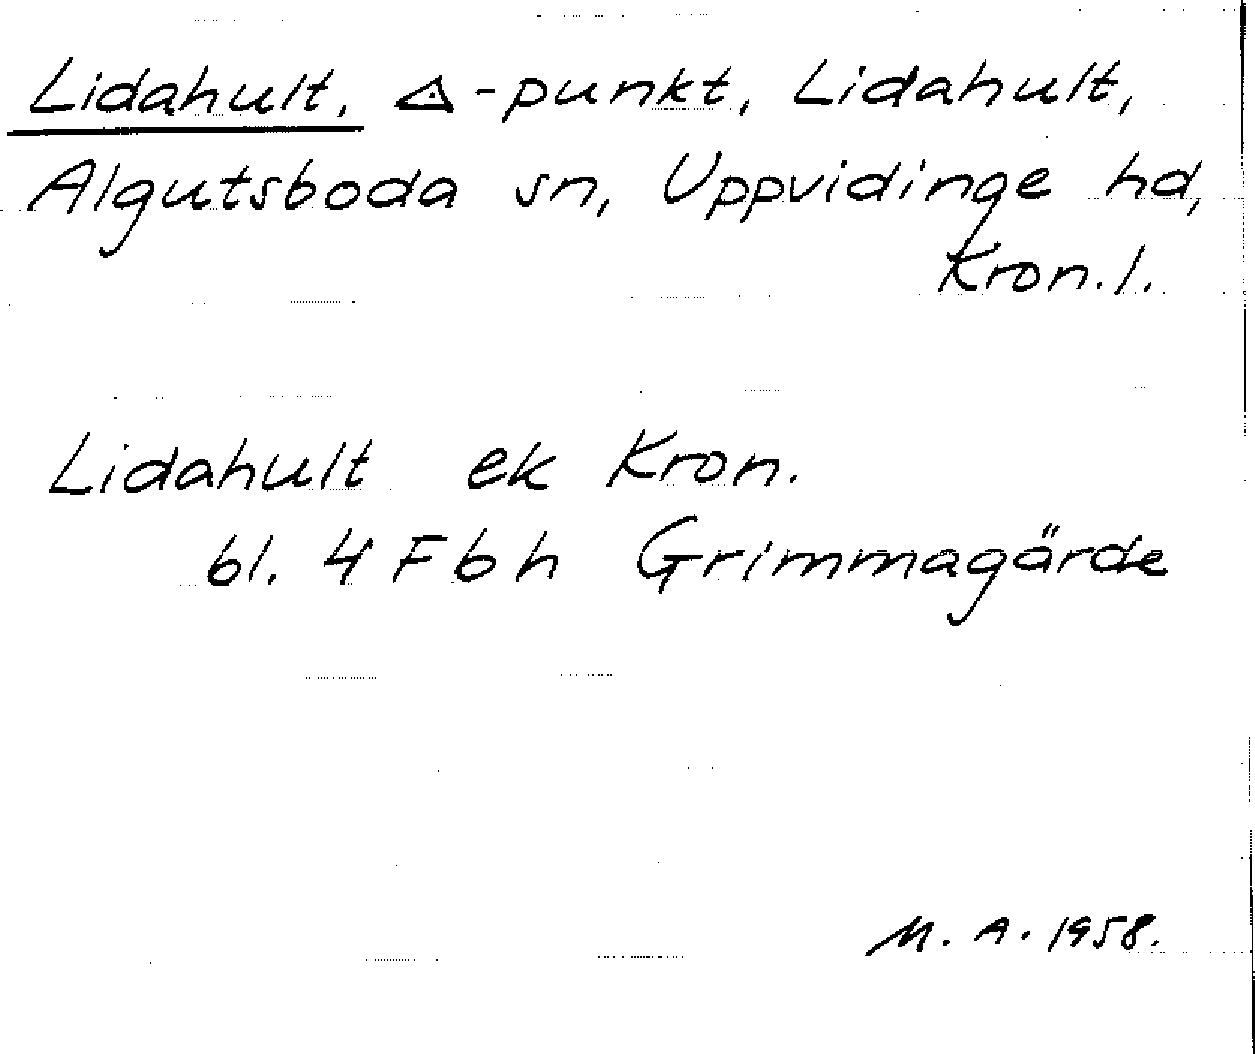 Lidahult, △-punkt, Lidahult,
Algutsboda sn, Uppvidinge hd,
Kron.l.
Lidahult ek Kron.
bl. 4 F b h Grimmagärde
M. A. 1958.